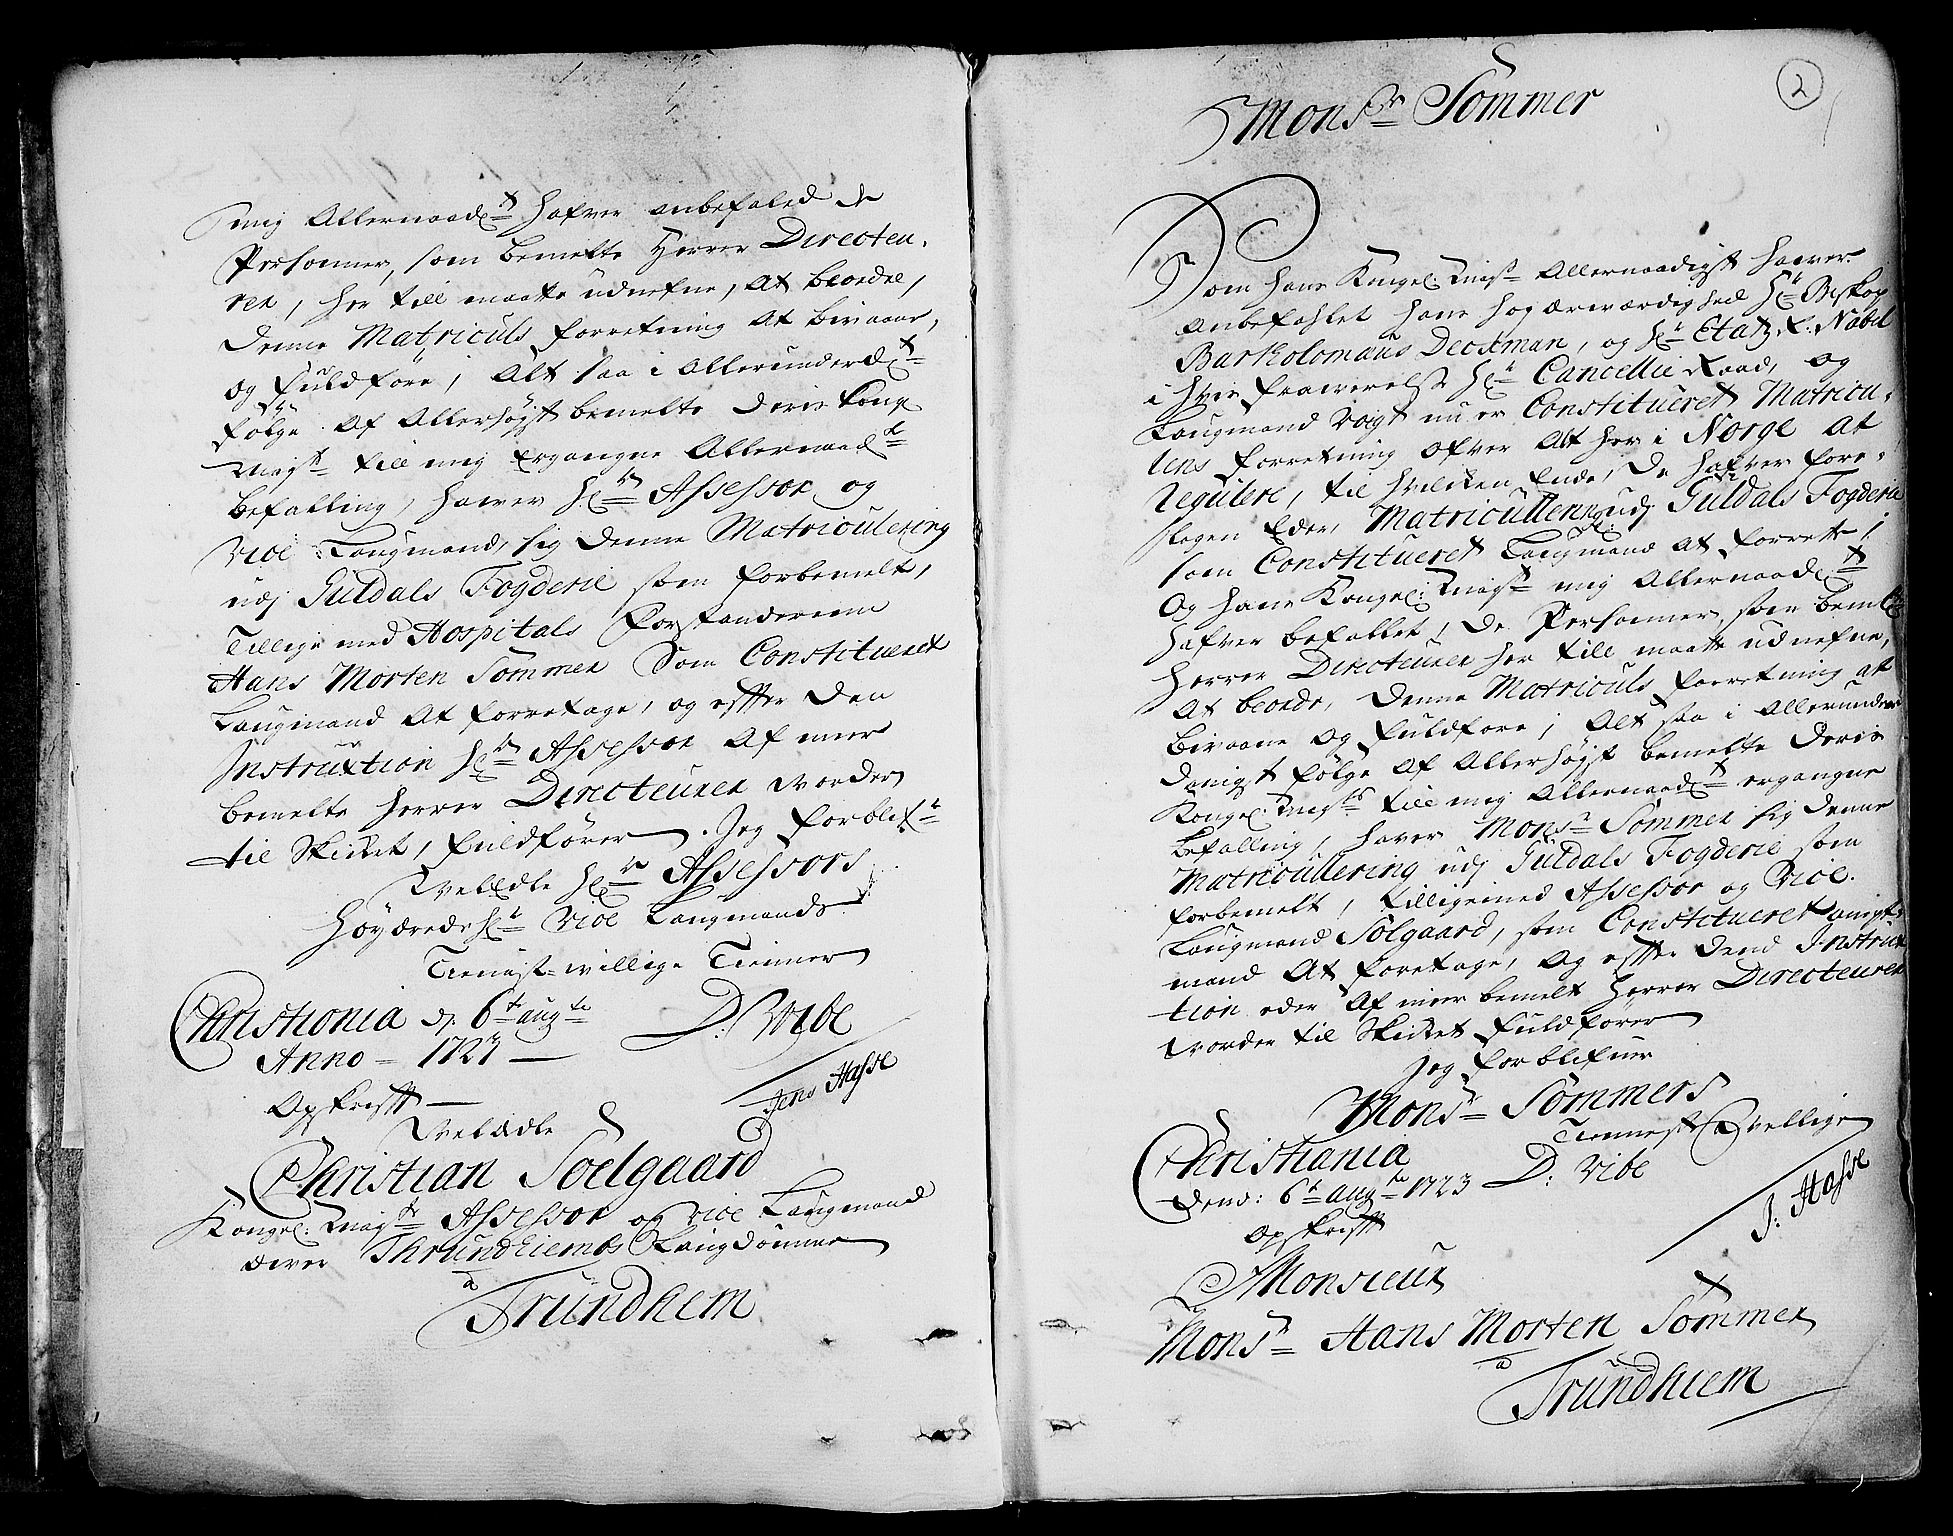 mig Allernaadst hafver anbefaled de
Personner, som bemelte Herrer Directeu-
rer, her till maatte udnefne, at beordre,
denne Matriculs forretning at bivaane,
og fuldføre, Alt saa i Allerunderdst
følge af Allerhøyst bemelte deris Kong
Mayts till mig ergangne Allernaadste
befalling, haver Hr Assessor og
vice Laugmand, sig denne Matriculering
udj Guldals Fogderie som forbemelt,
Tillige med Hospitals Forstanderenn
Hans Morten Sommer Som Constitueret
Laugmand at forretage, og effter den
Instruxtion Hr Assessor af meer
bemelte Herrer Directeurer vorder
til Skicket, fuldfører. Jeg forblifr
Velædle Hr Assessors
Høyædrede Hr Vice Laugmands
Tienist-willige Tienner
Christiania d. 6te augti
D. Vibe
Anno 1723
Jens Hasse
Opskrifft
Velædle
Christian Soelgaard
Kongel: Mayts Assessor og vice Laugmand
over Thrundhiembs Laugdømme
a
Trundhem
2
Monsr Sommer
Som hans Kongel. Mayt Allernaadigst haver
anbefahlet hans høyærværdighed Hr Biskop
Bartholomæus Deichman, og Hr Etatz: R: Nobel
i hvis fraværelse Hr Cancellie Raad, og
Laugmand Vogt nu er Constitueret Matricu-
lens forretning ofver alt her i Norge at
Regulere, til hvilcken Ende, de hafver fore-
slagen Eder, Matriculleringen udj Guldals Fogderie
som Constitueret Laugmand at forrette,
Og hans Kongel: Mayt mig Allernaadst
hafver befallet, de Personner, som bemelte
Herrer Directeurer her till maatte udnefne,
at beordre, denne Matriculs forretning at
bivaane og fuldføre; Alt saa i Allerunder-
danigst følge af Allerhøyst bemelte deris
Kongel: Mayts till mig Allernaadst ergangne
befalling, haver Monsr Sommer sig denne
Matricullering udj Guldals Fogderie som
forbemelt, tilligemed Assessor og Vice-
Laugmand Solgaard, som Constitueret Laug-
mand at foretage, og effter dend Instruc-
tion eder af meer bemelt Herrer Directeurer
vorder til Skicket fuldfører
Jeg forblifuer
Monsr Sommers
Tiennest Villige
Christiania
D: Vibe
dend: 6te augti 1723
J: Hasse
Opskrifft
A Monsieur
Monsr Hans Morten Sommer
a
Trundhiem